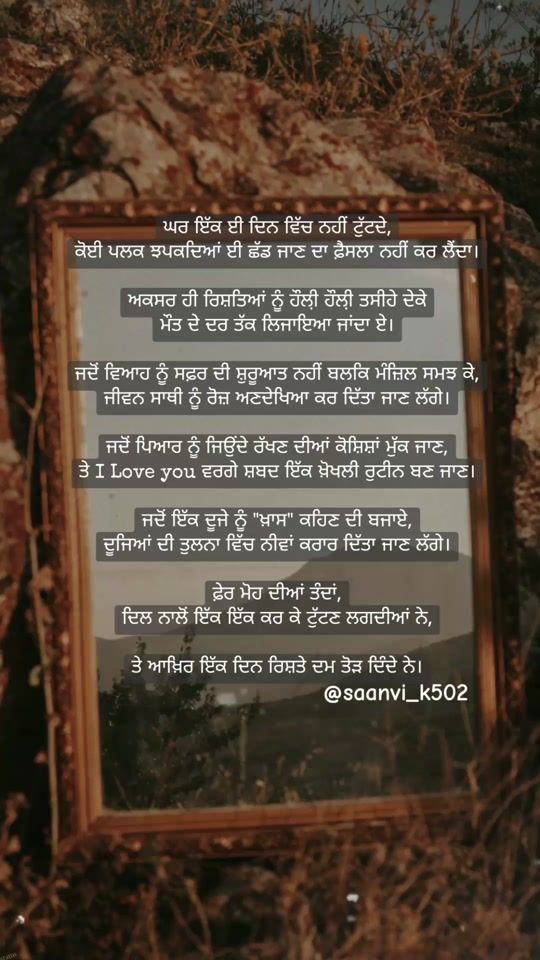 ਘਰ ਇੱਕ ਈ ਦਿਨ ਵਿੱਚ ਨਹੀਂ ਟੁੱਟਦੇ,
ਕੋਈ ਪਲਕ ਝਪਕਦਿਆਂ ਈ ਛੱਡ ਜਾਣ ਦਾ ਫ਼ੈਸਲਾ ਨਹੀਂ ਕਰ ਲੈਂਦਾ।
ਅਕਸਰ ਹੀ ਰਿਸ਼ਤਿਆਂ ਨੂੰ ਹੌਲੀ਼ ਹੌਲੀ਼ ਤਸੀਹੇ ਦੇਕੇ
ਮੌਤ ਦੇ ਦਰ ਤੱਕ ਲਿਜਾਇਆ ਜਾਂਦਾ ਏ।
ਜਦੋਂ ਵਿਆਹ ਨੂੰ ਸਫ਼ਰ ਦੀ ਸ਼ੁਰੂਆਤ ਨਹੀਂ ਬਲਕਿ ਮੰਜ਼ਿਲ ਸਮਝ ਕੇ,
ਜੀਵਨ ਸਾਥੀ ਨੂੰ ਰੋਜ਼ ਅਣਦੇਖਿਆ ਕਰ ਦਿੱਤਾ ਜਾਣ ਲੱਗੇ।
ਜਦੋਂ ਪਿਆਰ ਨੂੰ ਜਿਉਂਦੇ ਰੱਖਣ ਦੀਆਂ ਕੋਸ਼ਿਸ਼ਾਂ ਮੁੱਕ ਜਾਣ,
ਤੇ I Love you ਵਰਗੇ ਸ਼ਬਦ ਇੱਕ ਖ਼ੋਖਲੀ ਰੁਟੀਨ ਬਣ ਜਾਣ।
ਜਦੋਂ ਇੱਕ ਦੂਜੇ ਨੂੰ "ਖ਼ਾਸ" ਕਹਿਣ ਦੀ ਬਜਾਏ,
ਦੂਜਿਆਂ ਦੀ ਤੁਲਨਾ ਵਿੱਚ ਨੀਵਾਂ ਕਰਾਰ ਦਿੱਤਾ ਜਾਣ ਲੱਗੇ।
ਫ਼ੇਰ ਮੋਹ ਦੀਆਂ ਤੰਦਾਂ,
ਦਿਲ ਨਾਲੋਂ ਇੱਕ ਇੱਕ ਕਰ ਕੇ ਟੁੱਟਣ ਲਗਦੀਆਂ ਨੇ,
ਤੇ ਆਖ਼ਿਰ ਇੱਕ ਦਿਨ ਰਿਸ਼ਤੇ ਦਮ ਤੋੜ ਦਿੰਦੇ ਨੇ।
@saanvi_k502